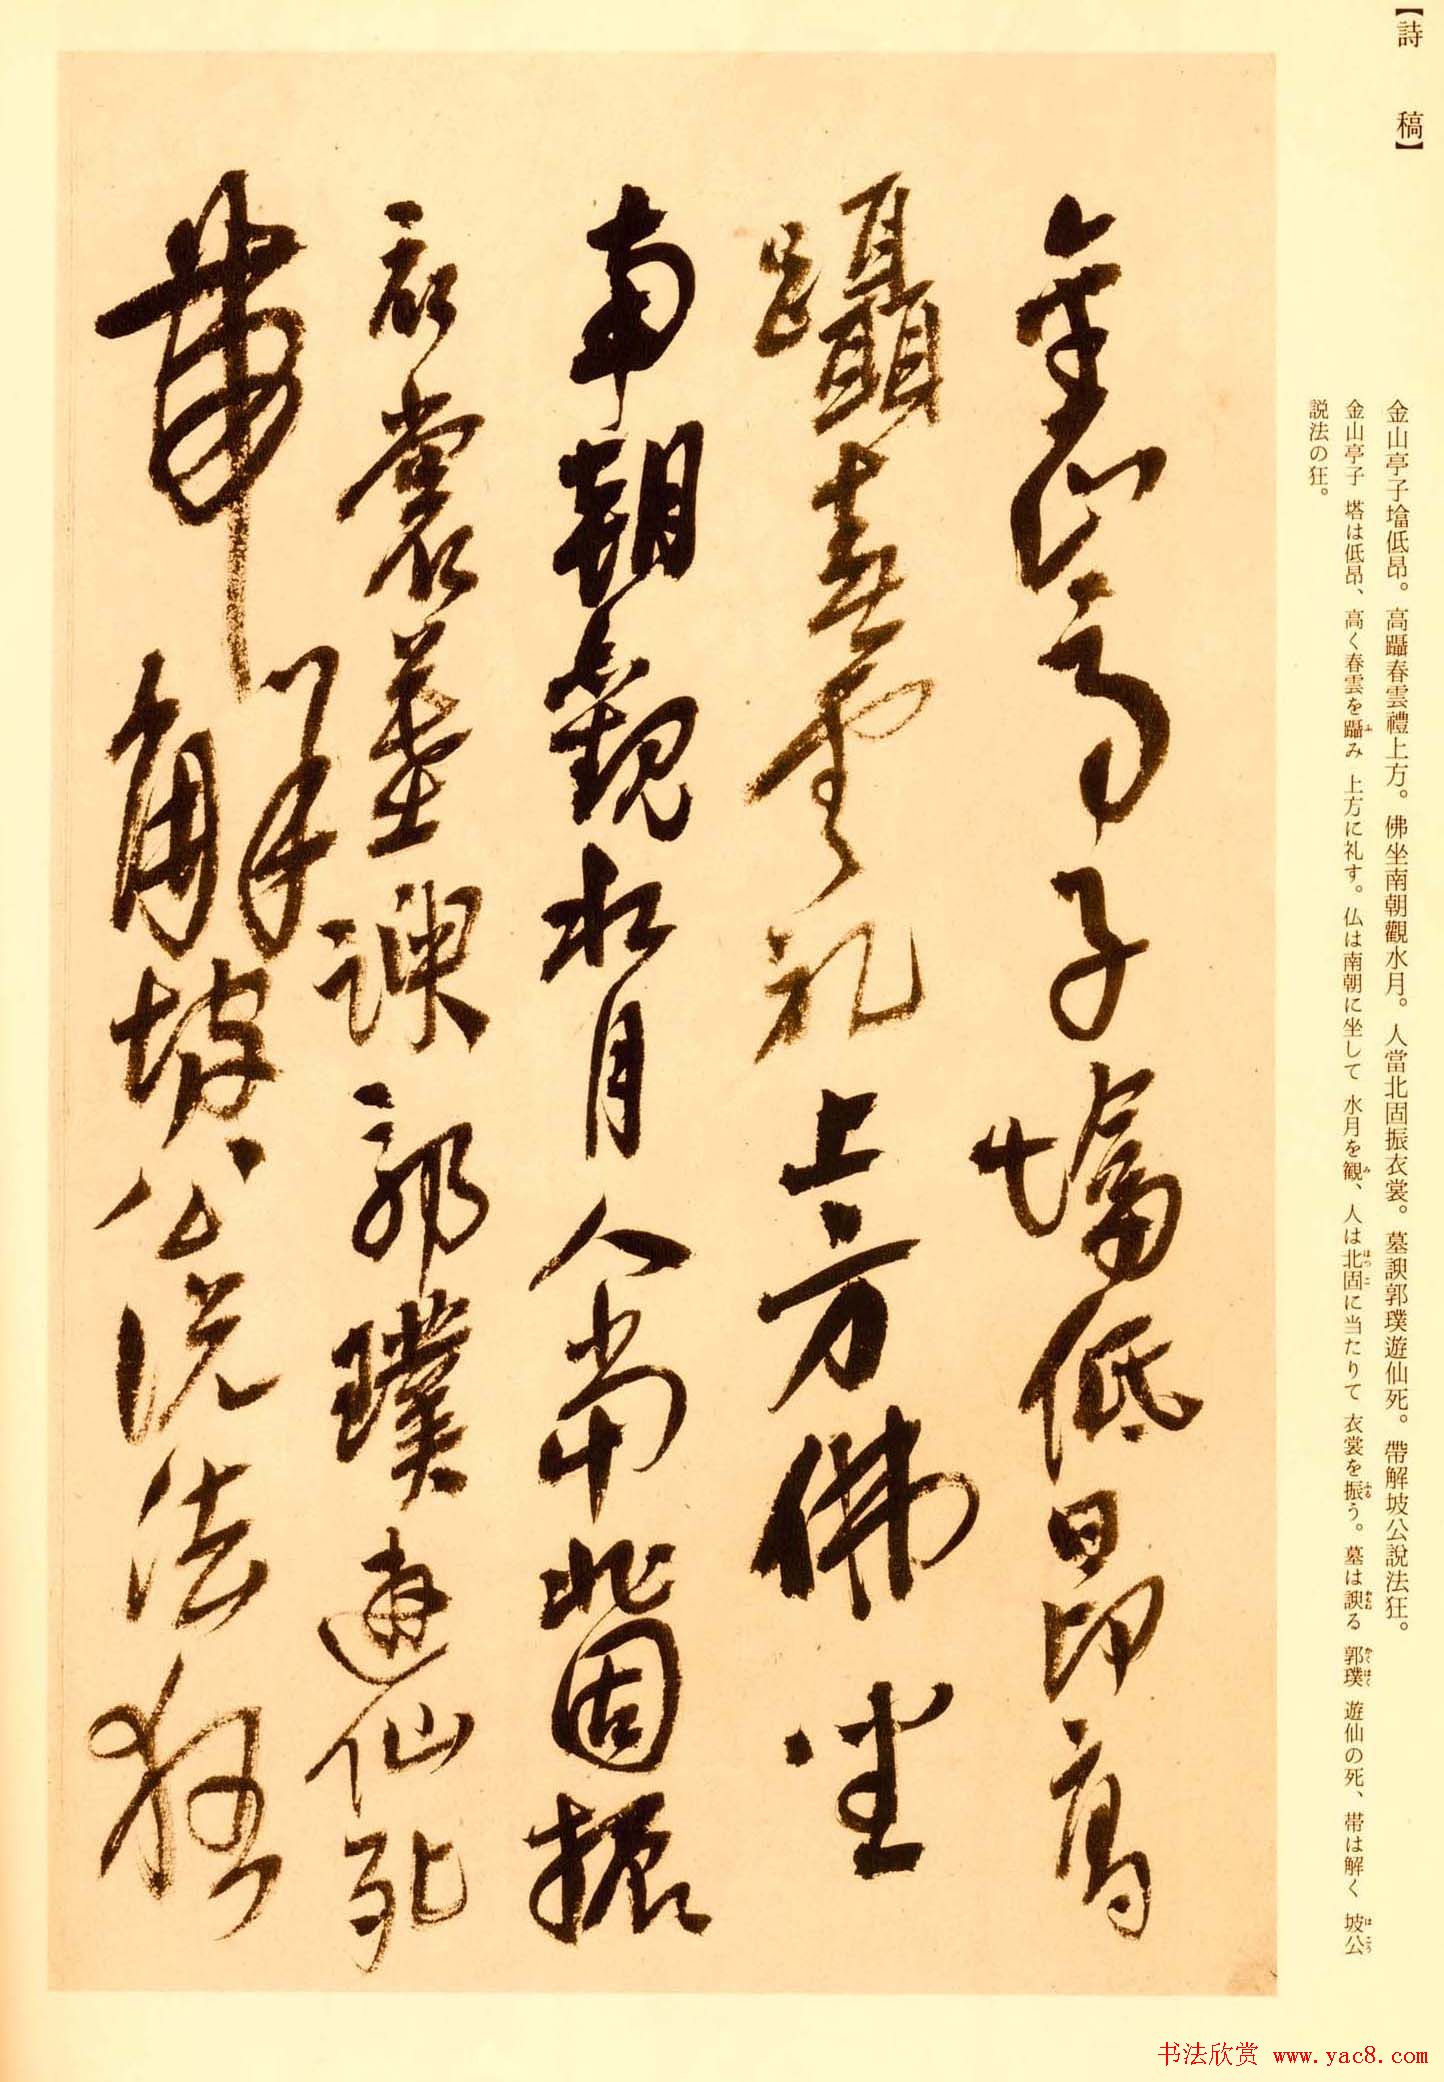 【詩稿】
金山亭子墖低昂。高躡春雲禮上方。佛坐南朝觀水月。人當北固振衣裳。墓諛郭璞遊仙死。帶解坡公說法狂。
金山亭子 塔は低昂、高く春雲を躡み 上方に礼す。仏は南朝に坐して 水月を観、人は北固に当たりて 衣裳を振う。墓は諛る 郭璞 遊仙の死、帯は解く 坡公
説法の狂。
金山亭子墖低昂高
躡春雲礼上方佛坐
南朝觀水月人當北固振
衣裳墓諛郭璞遊仙死
帶解坡公說法狂
书法欣赏 www.yac8.com